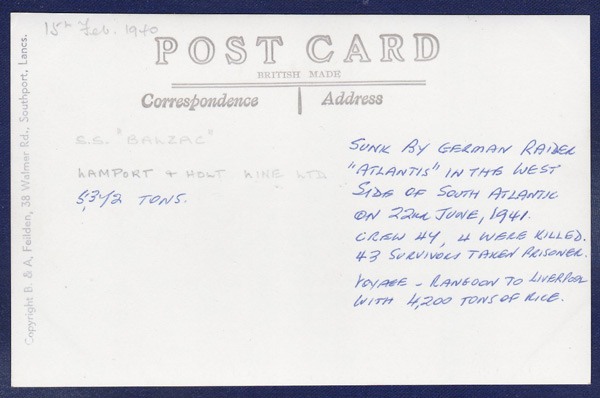 15th Feb. 1940
POST CARD
BRITISH MADE
Correspondence
Address
S.S. "BALZAC"
LAMPORT & HOLT LINE LTD
5,372 TONS.
SUNK BY GERMAN RAIDER
"ATLANTIS" IN THE WEST
SIDE OF SOUTH ATLANTIC
ON 22nd JUNE, 1941.
CREW 47, 4 WERE KILLED.
43 SURVIVORS TAKEN PRISONER.
VOYAGE - RANGOON TO LIVERPOOL
WITH 4,200 TONS OF RICE.
Copyright B. & A. Feilden, 38 Walmer Rd., Southport, Lancs.